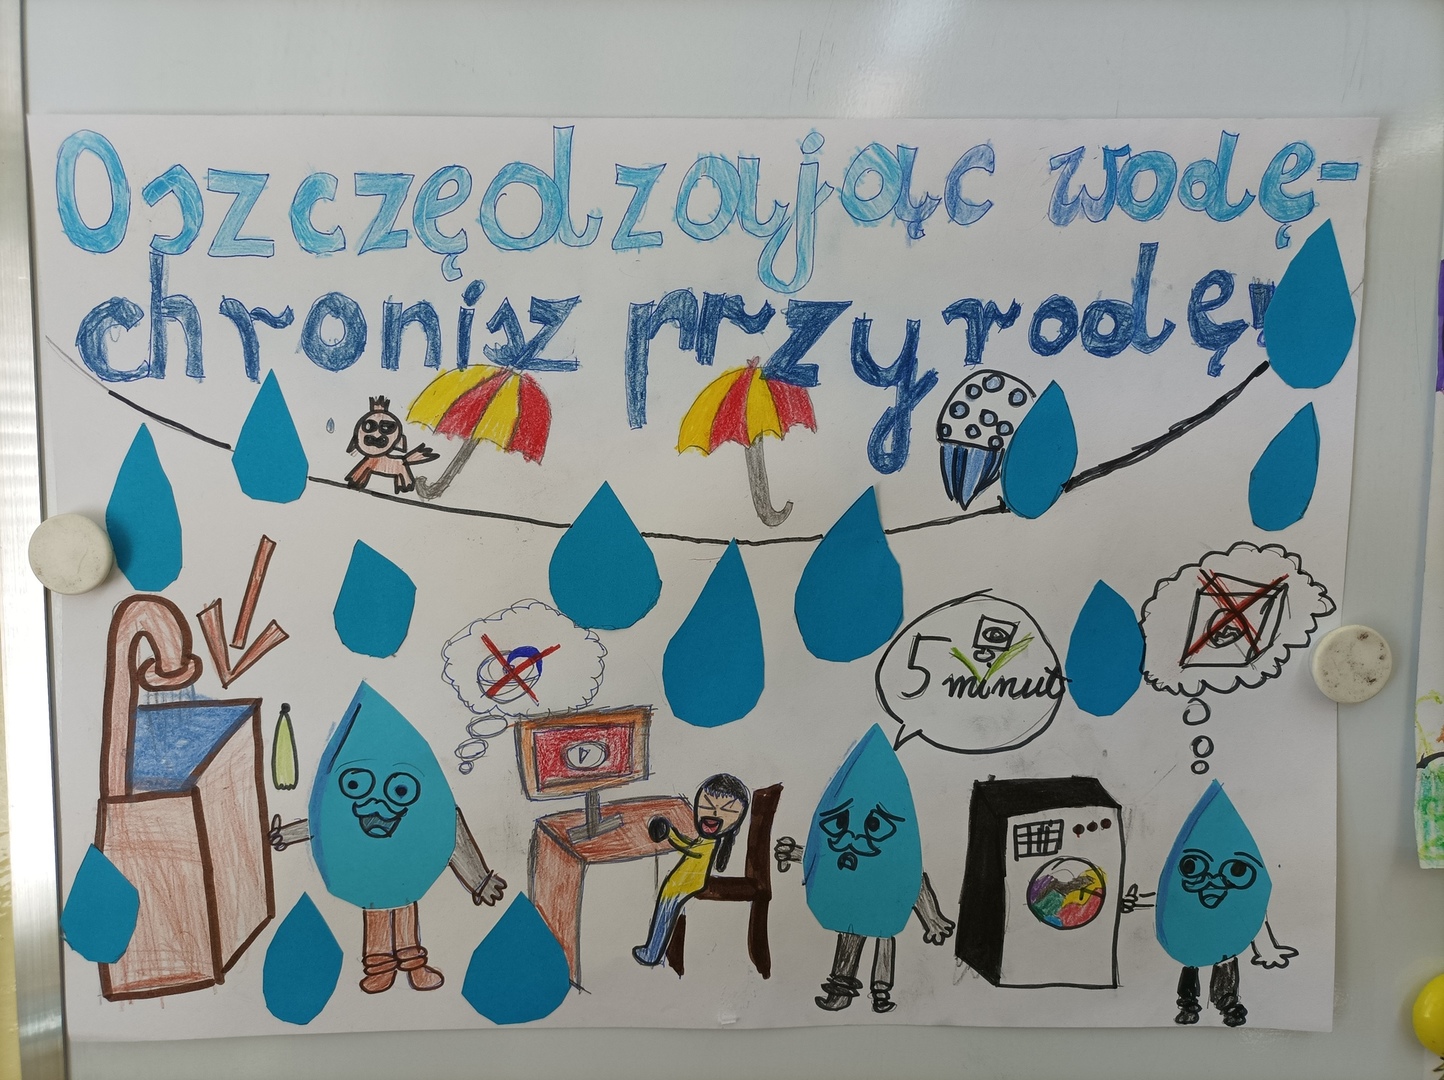 Oszczędzając wodę-
chronisz przyrodę!
5 minut